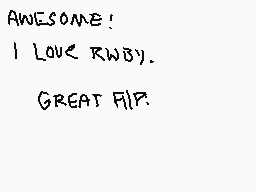 AWESOME!
I LOVE RWBY.
GREAT FlIP.